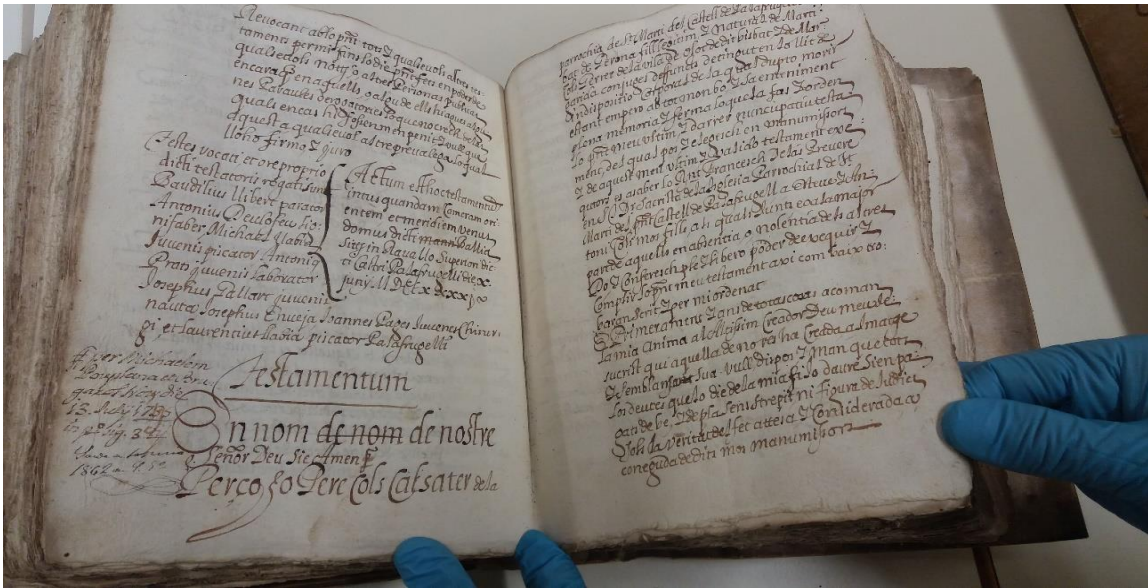 Revocant ab lo pnt tots y qualsevols altres tes-
taments per mi fins lo die pnt fets en poder de
qualsevols Notts. o altres Personas publicas
encaraq en aquells o algu de ells hi hagues algu
nes Paraules derogatorias
qual encas hi fossen men penit y vull que
aquest a qualsevol altre prevalega lo qual
lloho firmo y juro
Testes vocati et ore proprio
dicti testatoris rogati sunt
Baudilius Llibert parator
Antonius
nifaber Michael Llabia
Juvenis piscator Antonius
Prats juvenis laborator
Josephus Pallart juvenis
nauta Josephus Enveja Joannes Pages Juvenes Chirur-
gi, et Laurentius Lladia piscator Palafrugelli
Actum est hoc testamentum
intus quandam Cameram ori
entem et meridiem versus
domus dicti
sitae in Ravallo Superiori dic
ti Castri Palafrugelli die x
Juny
per Michaelem
die
13 July
1862
Testamentum
En nom de nom de nostre
Senor Deu sie Amen
Perço Jo Pere Cols Calsater de la
parrochia de St. Marti del Castell de Palafrugell
bat de Gerona fill llegitim y natural de Marti
Cols de la vila de Olot de dit bisbat y de Mar-
garida conjuges deffuncts detingut en lo llit de
indispositio corporal de la qual dupto morir
estant empero ab tot mon bo y sa enteniment
plena memoria y ferma loquela fas y orden
lo pnt meu ultim y darrer nuncupatiu testa
ment, del qual pos y elegesch en manumissors
y de aquest meu ultim y valido testament exe-
quutors es a saber lo Rnt Francesch
en Sacrista de la Iglesia Parrochial de St.
Marti del pnt Castell de Palafrugell a Esteve
toni Cols mos fills als quals junts o a la major
part de aquells en absentia o nolentia dels altres
Do y Conferesch ple y libero poder de exequir y
complir lo pnt meu testament axi com baix tro-
baran sent y per mi ordenat
Primerament y ans de totas cosas acoman
la mia Anima al Altissim Creador Deu meu Je-
sucrist qui aquella de no res ha creada a Imatge
y semblansa sua Vull dispon y man que tots
los deutes que lo die de la mia fi jo dauré sien pa-
gats be, y de pla sens strepit ni figura de Judici
sols la veritat del fet attesa y Considerada a
coneguda de dits mos manumissors